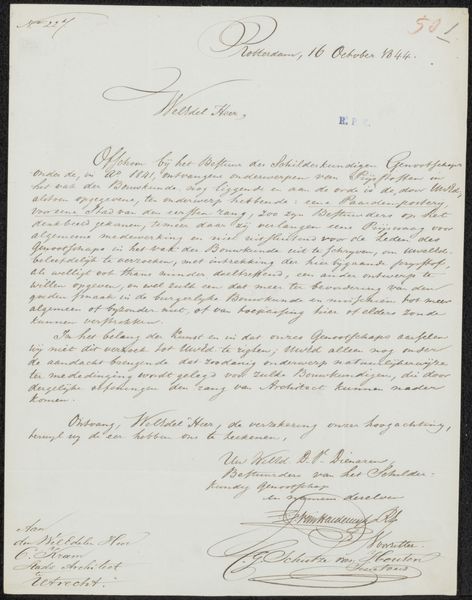 No 227
50 1
Rotterdam, 16 October 1844.
WelEdel Heer,
R. P. K.
Ofschoon bij het Bestuur des Schilderkundigen Genootschaps
onder de, in Ao 1841, ontvangen onderwerpen van Prijsstoffen in
het vak der Bouwkunde, nog liggende en aan de orde is, de door UwEd,
alstoen opgegevene, ten onderwerp hebbende: eene Paardenposterij
voor eene Stad van den eersten rang, zoo zijn Bestuurders op het
denkbeeld gekomen, temeer daar zij verlangen eene Prijsvraag voor
algemeene mededinging en niet uitsluitend voor de Leden des
Genootschaps in het vak der Bouwkunde uit te schrijven, om UwEd
beleefdelijk te verzoeken, met intrekking der hier bijgaande prijsstof,
als welligt ook thans minder doeltreffend, een ander ontwerp te
willen opgeven, en wel zulk een dat meer ter bevordering van den
goeden smaak in de burgerlijke Bouwkunde en misschien tot meer
algemeen of bijzonder nut, of van toepassing hier of elders zoude
kunnen verstrekken.
In het belang der Kunst en in dat onzes Genootschaps aarzelen
wij niet dit verzoek tot UwEd te rigten; UwEd alleen nog onder
de aandacht brengende dat zoodanig onderwerp natuurlijkerwijze
ter mededinging wordt gelegd voor zulke Bouwkundigen, die door
dergelijke oefeningen den rang van Architect kunnen nader
komen.
Ontvang, WelEdel Heer, de verzekering onzer hoogachting,
terwijl wij de eer hebben ons te teekenen,
Uw WelEd D.W. Dienaren,
Bestuurders van het Schilder-
kundig Genootschap
en namens dezelven
Voorzitter
C. G. Schutze van Houten
Secretaris
Aan
den WelEdelen Heer
C. Kramm
Stads Architect
Utrecht.